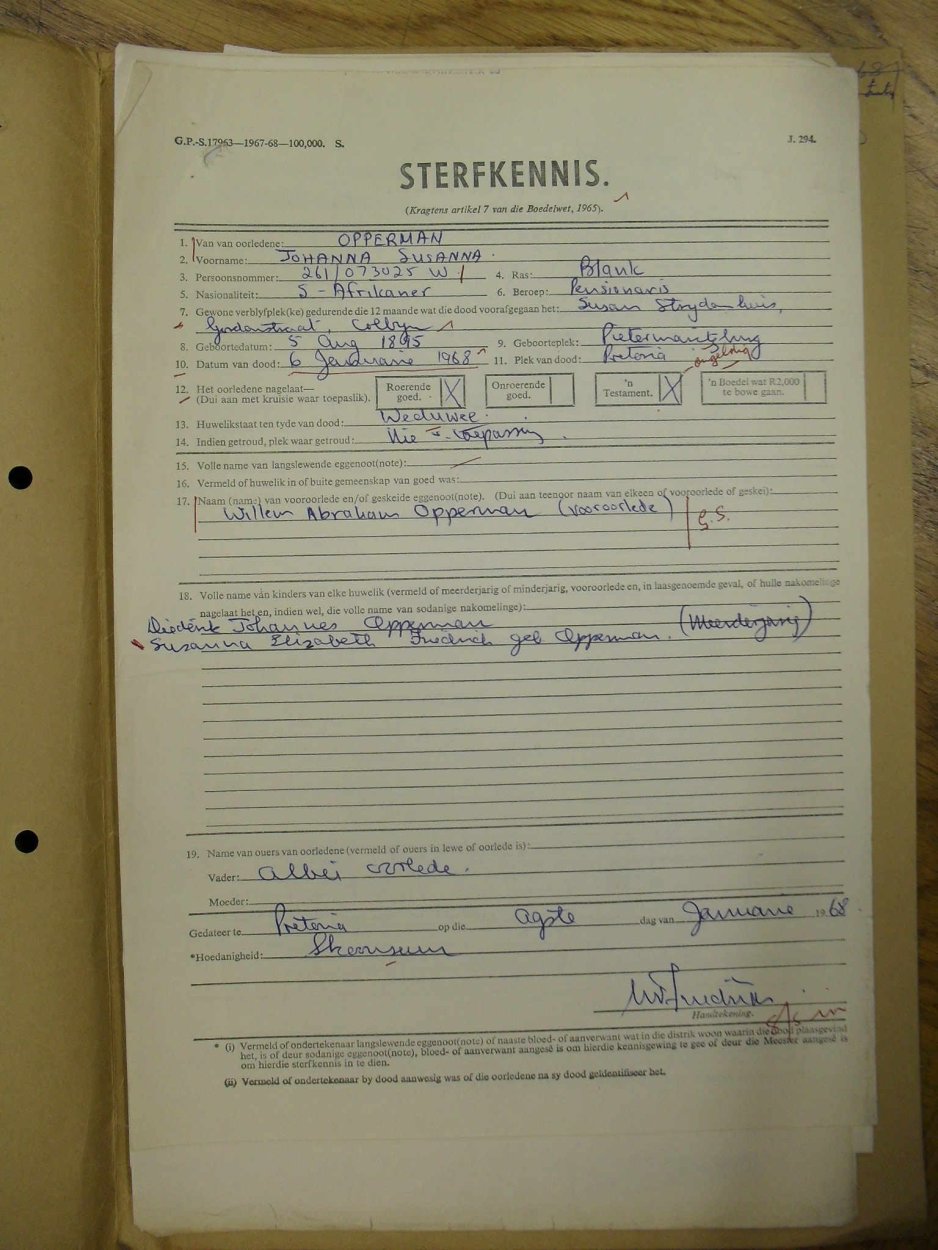 G.P.-S.17963—1967-68—100,000. S. J. 294.
STERFKENNIS.
(Kragtens artikel 7 van die Boedelwet, 1965).
1. Van van oorledene: OPPERMAN
2. Voorname: JOHANNA SUSANNA
3. Persoonsnommer: 261/073025 W 4. Ras: Blank
5. Nasionaliteit: S-Afrikaner 6. Beroep: Pensionaris
7. Gewone verblyfplek(ke) gedurende die 12 maande wat die dood voorafgegaan het: Susan Strydomhuis,
Gordonstraat, Colbyn
8. Geboortedatum: 5 Aug 1895 9. Geboorteplek: Pietermaritzburg
10. Datum van dood: 6 Januarie 1968 11. Plek van dood: Pretoria
ongeldig
12. Het oorledene nagelaat— Roerende goed. X Onroerende goed. 'n Testament. X 'n Boedel wat R2,000 te bowe gaan.
(Dui aan met kruisie waar toepaslik).
13. Huwelikstaat ten tyde van dood: Weduwee.
14. Indien getroud, plek waar getroud: Nie v. toepassing.
15. Volle name van langslewende eggenoot(note):
16. Vermeld of huwelik in of buite gemeenskap van goed was:
17. Naam (name) van vooroorlede en/of geskeide eggenoot(note). (Dui aan teenoor naam van elkeen of vooroorlede of geskei):
Willem Abraham Opperman (vooroorlede)
18. Volle name van kinders van elke huwelik (vermeld of meerderjarig of minderjarig, vooroorlede en, in laasgenoemde geval, of hulle nakomelinge
nagelaat het en, indien wel, die volle name van sodanige nakomelinge):
Diederik Johannes Opperman
Susanna Elizabeth Friedrich geb Opperman. (Meerderjarig)
19. Name van ouers van oorledene (vermeld of ouers in lewe of oorlede is):
Vader: Albei oorlede.
Moeder:
Gedateer te Pretoria op die agste dag van Januarie 1968
*Hoedanigheid: Skoonseun
Handtekening.
* (i) Vermeld of ondertekenaar langslewende eggenoot(note) of naaste bloed- of aanverwant wat in die distrik woon waarin die dood plaasgevind
het, is of deur sodanige eggenoot(note), bloed- of aanverwant aangesê is om hierdie kennisgewing te gee of deur die Meester aangesê is
om hierdie sterfkennis in te dien.
(ii) Vermeld of ondertekenaar by dood aanwesig was of die oorledene na sy dood geïdentifiseer het.